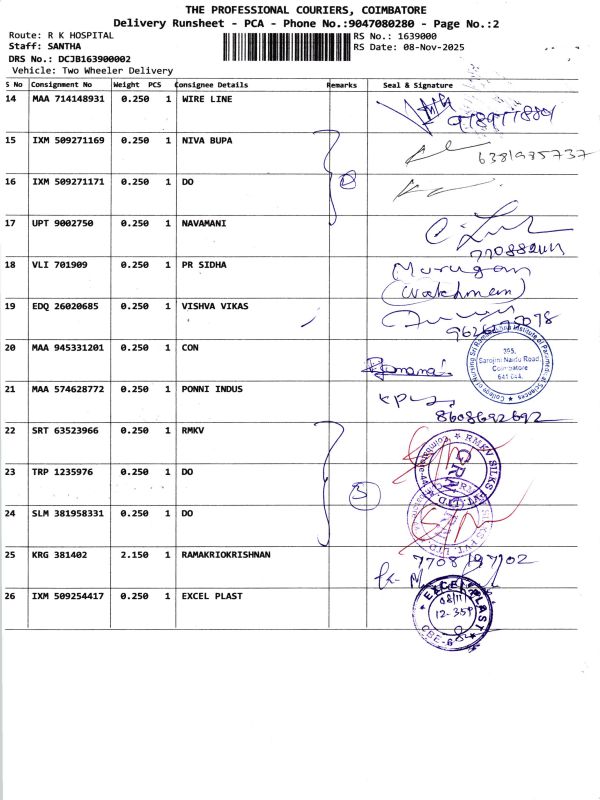 THE PROFESSIONAL COURIERS, COIMBATORE
Delivery Runsheet - PCA - Phone No.:9047080280 - Page No.:2
Route: R K HOSPITAL RS No.: 1639000
Staff: SANTHA RS Date: 08-Nov-2025
DRS No.: DCJB163900002
Vehicle: Two Wheeler Delivery
S No Consignment No Weight PCS Consignee Details Remarks Seal & Signature
14 MAA 714148931 0.250 1 WIRE LINE
15 IXM 509271169 0.250 1 NIVA BUPA
6381985737
16 IXM 509271171 0.250 1 DO
17 UPT 9002750 0.250 1 NAVAMANI
18 VLI 701909 0.250 1 PR SIDHA Murugan
(Watchman)
19 EDQ 26020685 0.250 1 VISHVA VIKAS
20 MAA 945331201 0.250 1 CON
395,
Sarojini Naidu Road,
Coimbatore
641 044.
21 MAA 574628772 0.250 1 PONNI INDUS
8608692692
22 SRT 63523966 0.250 1 RMKV
RMKV SILKS PVT. LTD.
23 TRP 1235976 0.250 1 DO
3
24 SLM 381958331 0.250 1 DO
25 KRG 381402 2.150 1 RAMAKRIOKRISHNAN
7708197102
26 IXM 509254417 0.250 1 EXCEL PLAST
EXCEL PLAST
08/11
12-35P
CBE-6